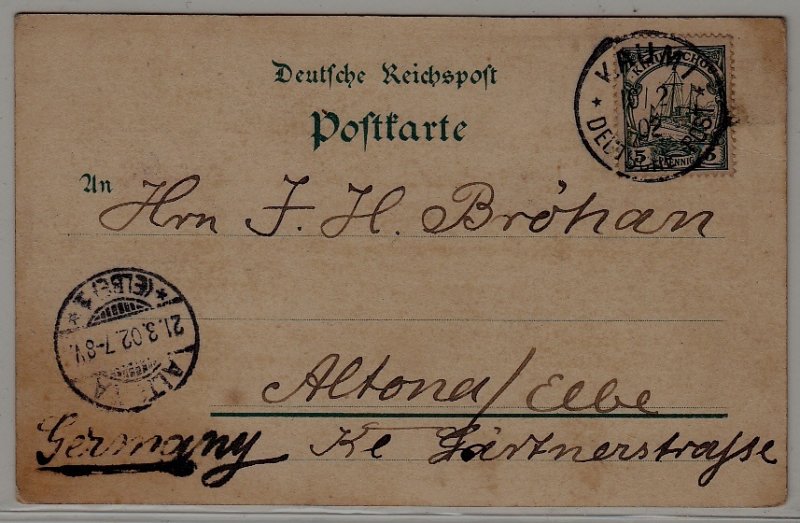 Deutsche Reichspost
Postkarte
KIAUTSCHOU
5 PFENNIG 5
2
02
DEUTSCHE POST
An
Hrn J. H. Bröhan
ALTONA
21.3.02.7-8V.
* (ELBE) 1 *
Altona/Elbe
Germany Kl Gärtnerstraſse